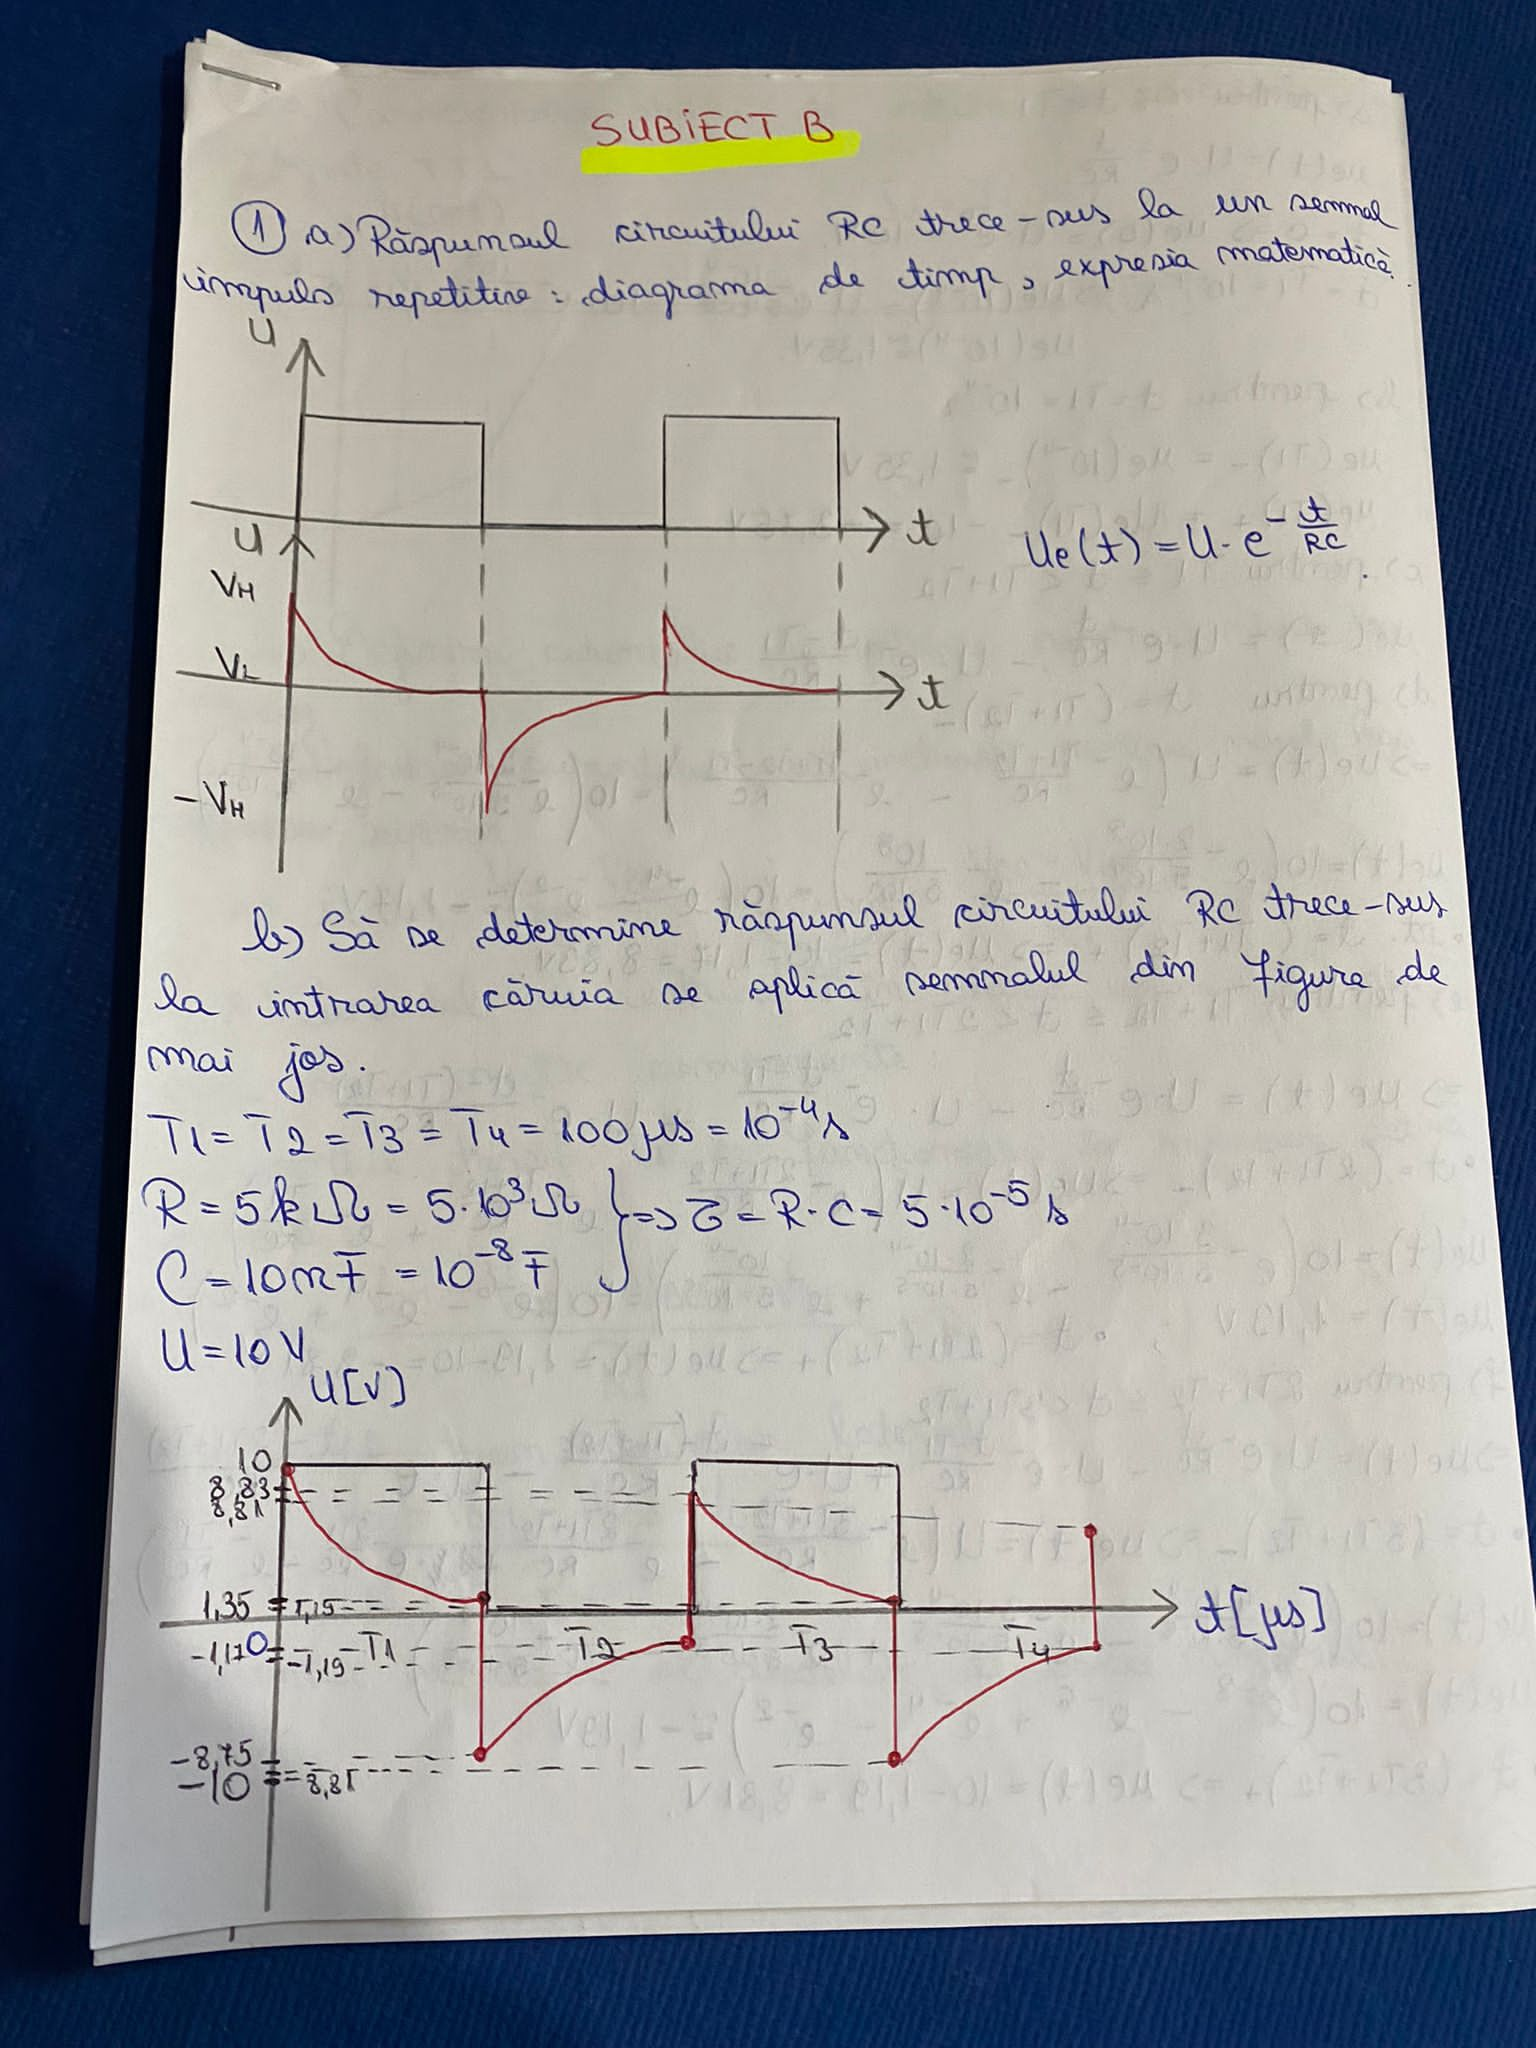 SUBIECT B
1 a) Răspunsul circuitului RC trece-sus la un semnal
impuls repetitive: diagrama de timp, expresia matematică.
U
t
U
VH
VL
t
-VH
Ue(t) = U · e^(-t/RC).
b) Să se determine răspunsul circuitului RC trece-sus
la intrarea căruia se aplică semnalul din figura de
mai jos.
T1 = T2 = T3 = T4 = 100 μs = 10^-4 s
R = 5 kΩ = 5·10^3 Ω } => τ = R·C = 5·10^-5 s
C = 10nF = 10^-8 F
U = 10 V
U[V]
10
8,83
8,81
1,35
1,19
0
-1,17
-1,19
T1 T2 T3 T4
t[μs]
-8,75
-10
8,81